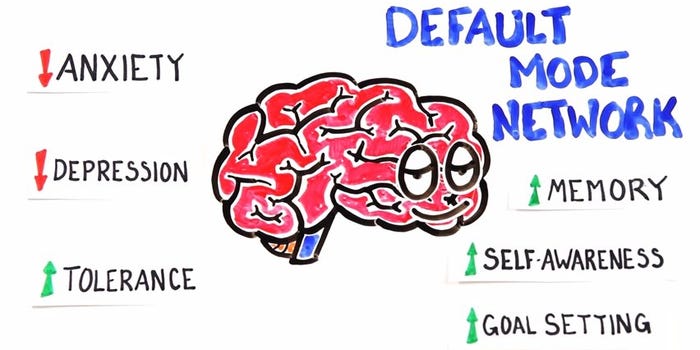 DEFAULT
MODE
NETWORK
ANXIETY
DEPRESSION
TOLERANCE
MEMORY
SELF-AWARENESS
GOAL SETTING